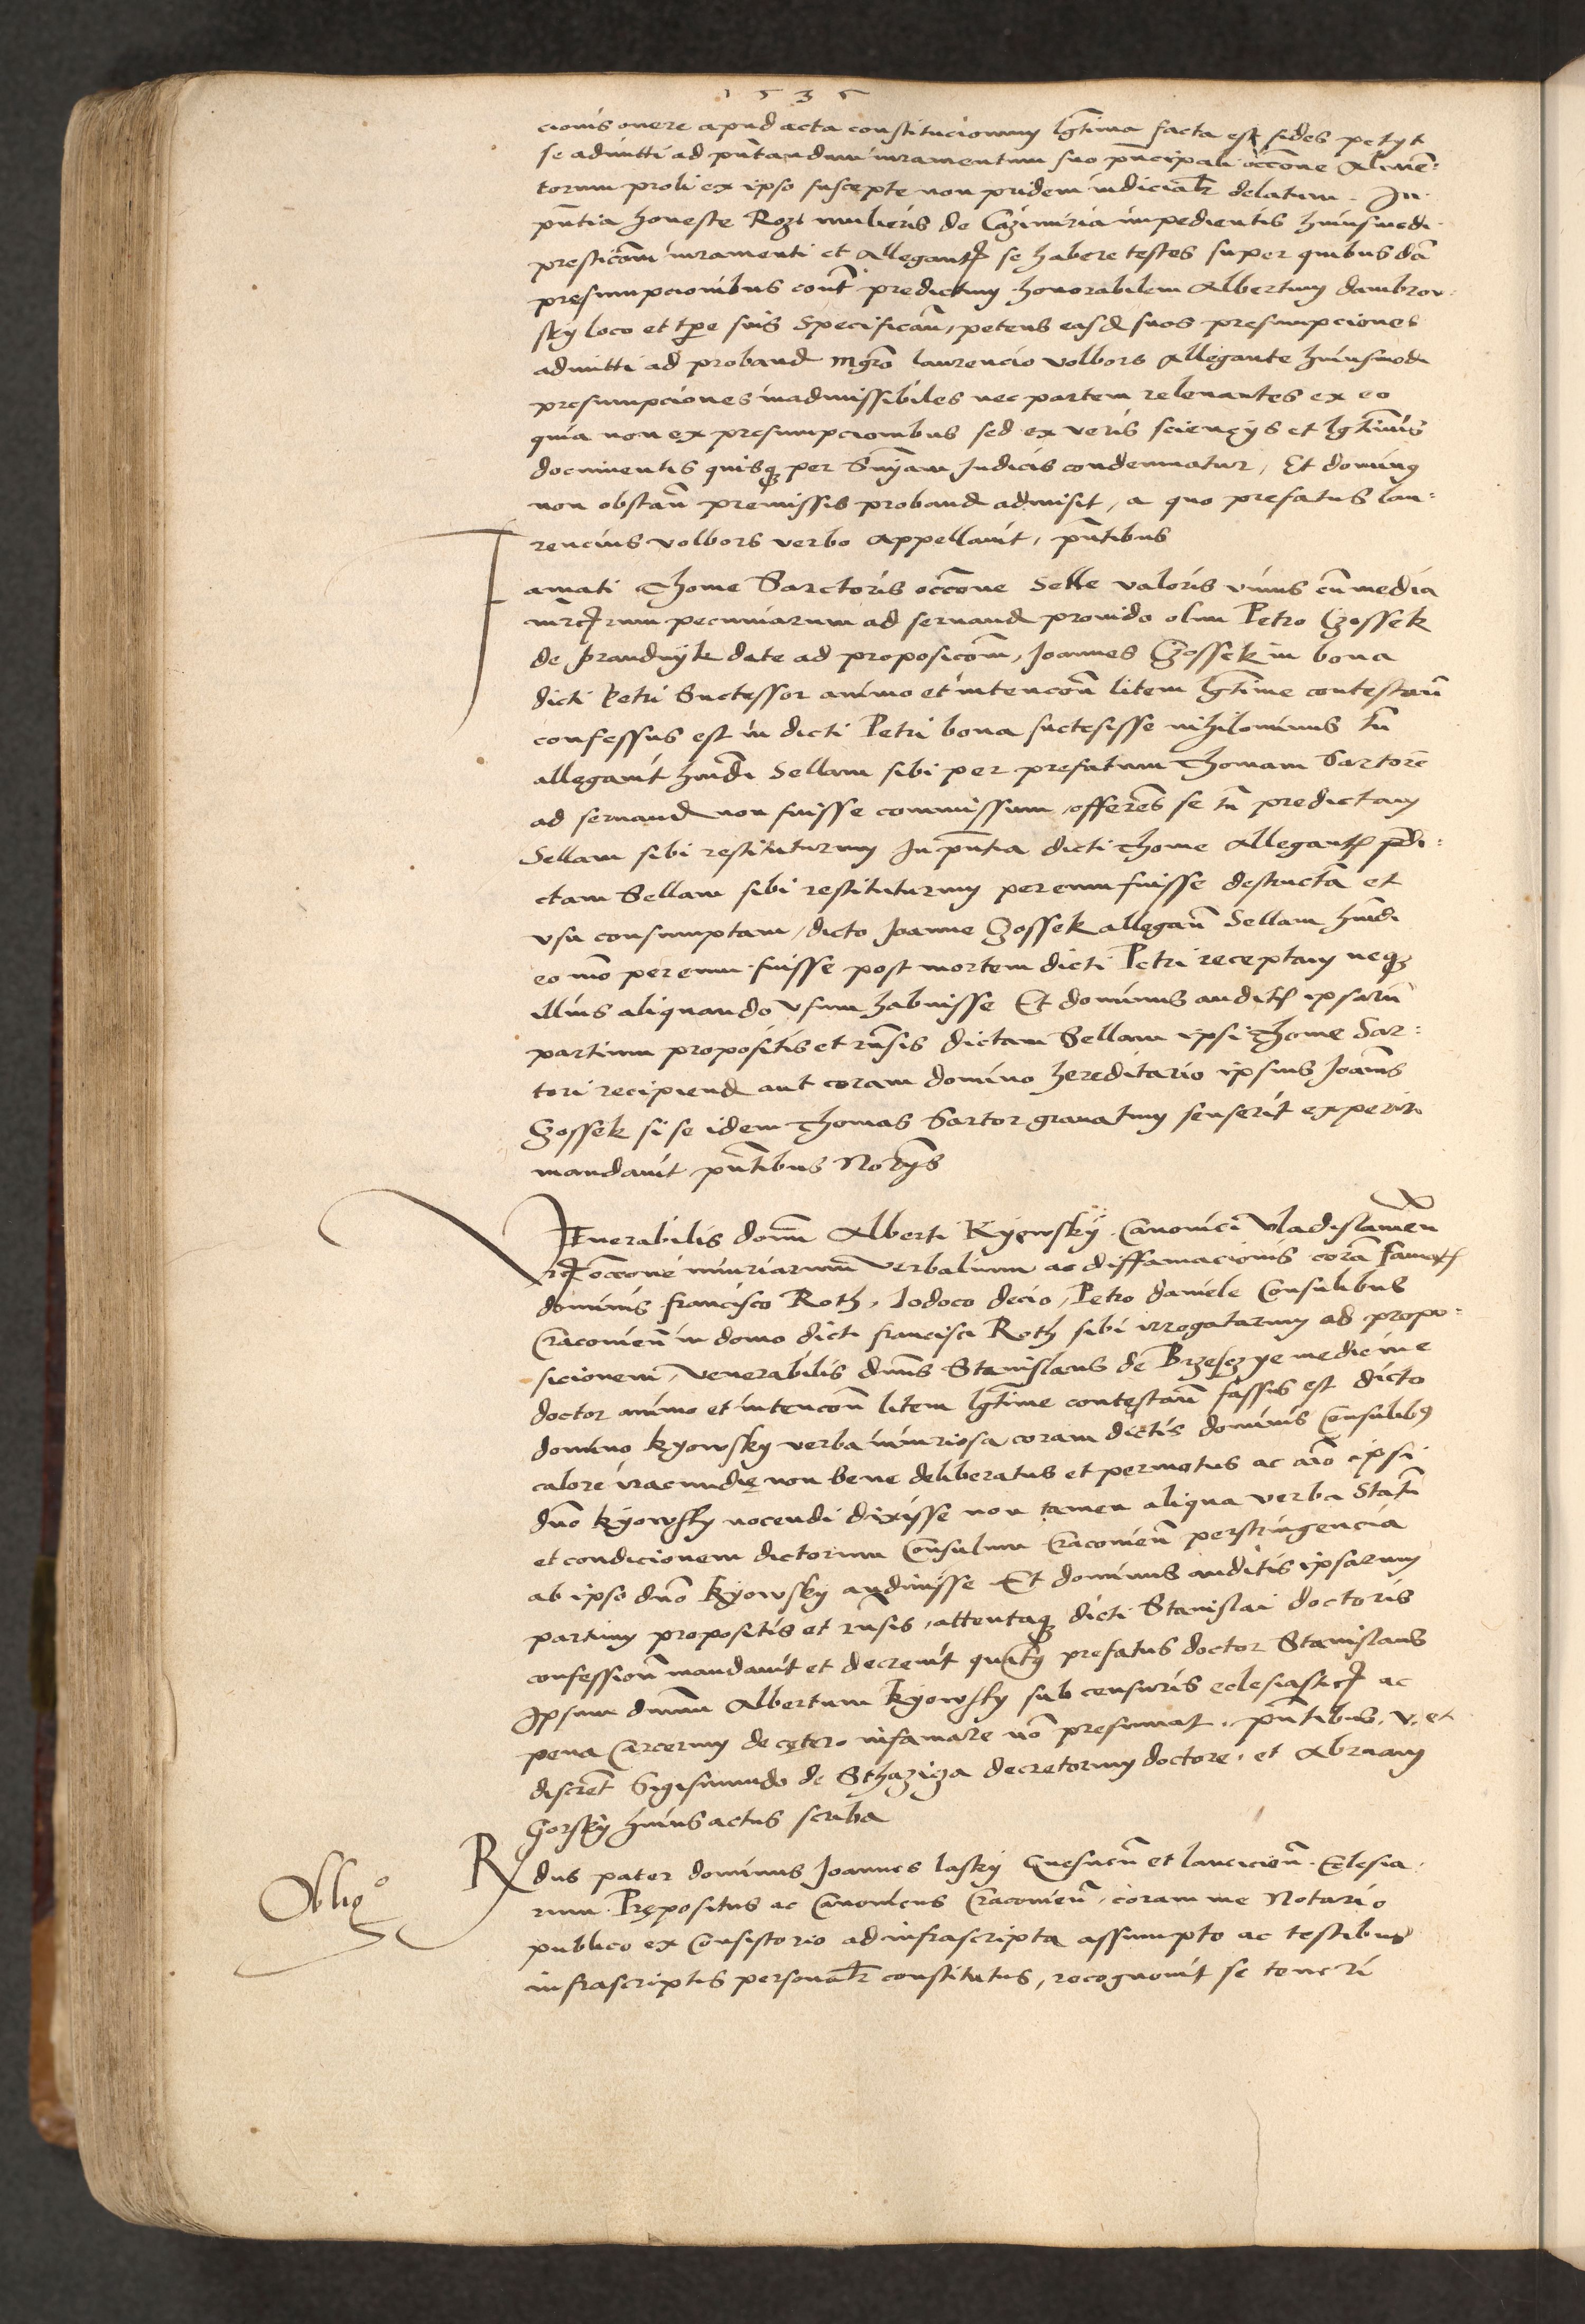 1535
cionis onere apud acta constitucionum lgtima facta est fides petyt
se admitti ad pntandum iuramentum suo pncipali occone Alimen=
torum proli ex ipso suscepte non pridem iudicialr delatum. In
pntia honeste mulieris de Cazimiria impedientis huiusmodi
presticom iuramenti et Allegantis se habere testes super quibusda
presumpcionibus cont predictum honorabilem Albertum dambrow
sky loco et tpe suis Specifican, petens easd suas presumpciones
admitti ad proband mgro laurencio volbors Allegante huiusmodi
presumpciones inadmissibiles nec partem releuantes ex eo
quia non ex presumpcionibus sed ex veris sciencys et lgtimis
documentis quisq per Snyam Judicis condemnatur, Et dominus
non obstan premissis proband admisit, a quo prefatus lau=
rencius volbors verbo Appellauit, pntibus
Famati Thome Sarctoris occone Selle valoris vnius cu media
mrcarum pecuniarum ad seruand prouido olim Petro Czossek
de prandnyk date ad proposicom, Joannes Czossek in bona
dicti Petri Successor animo et intencon litem lgtime contestan
confessus est in dicti Petri bona suctesisse nihilominus tn
allegauit huiudi Sellam sibi per prefatum Thomam Sartore
ad seruand non fuisse commissam, offerens se tn predictam
Sellam sibi restituturum In pntia dicti Thome Allegantis predi=
ctam Sellam sibi restituturum per eum fuisse destructa et
vsu consumptam, dicto Joanne Czossek allegan Sellam huidi
eo mo per eum fuisse post mortem dicti Petri receptam neq
illius aliquando vsum habuisse Et dominus auditis ipsaru
partium propositis et rnsis dictam Sellam ipsi Thome Sar=
tori recipiend aut coram domino hereditario ipsius Joanis
Czossek si se idem Thomas Sartor grauatum senserit experiri
mandauit pntibus Notarys
Venerabilis domi Alberti Kyowsky Canonici Vladislauien
occone iniuriarum verbalium ac diffamacionis cora famatis
dominis francisco Roth, Jodoco decio, Petro daniele Consulibus
Cracouien in domo dicti francisci Roth sibi irrogatarum ad propo=
sicionem, Venerabilis dnus Stanislaus de Brzeszye medicine
doctor animo et intencon litem lgtime contestan fassus est dicto
domino kyowsky verba iniuriosa coram dictis dominis Consulibus
calore iracundie non bene deliberatus et permotus ac aio ipsi
dno kyowsky nocendi dixisse non tamen aliqua verba Statu
et condicionem dictorum Consulum Cracouien perstringencia
ab ipso dno kyowsky audiuisse Et dominus auditis ipsarum
partium propositis et rnsis, attentaq dicti Stanislai doctoris
confession mandauit et decreuit quatenus prefatus doctor Stanislaus
Ipsum dnum Albertum kyowsky sub censuris eclesiasticis ac
pena Carcerum de cetero infamare no presumat, pntibus, V, et
discret Sigismundo de Sthazicza decretorum doctore, et Abraam
Gorsky huius actus scriba
Oblig°
Rdus pater dominus Joannes lasky Gnesnen et lancicien Eclesia
rum Prepositus ac Canonicus Cracouien, coram me Notario
publico ex Consistorio ad infrascripta assumpto ac testibus
infrascriptis personalr constitutus, recognouit se teneri